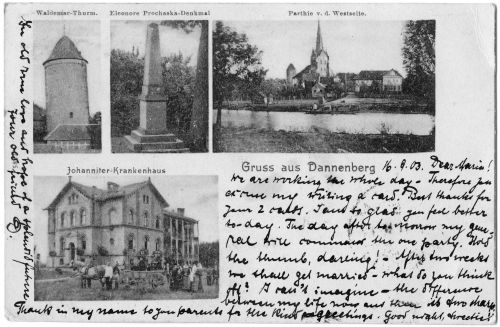 Waldemar-Thurm.
Eleonore Prochaska-Denkmal
Parthie v. d. Westseite.
Johanniter-Krankenhaus
Gruss aus Dannenberg
16.9.03. Dear Maria!
We are working the whole day - Therefore you
my writing a card. Best thanks for
your 2 cards. I am so glad you feel better
to-day. The day after to-morrow my gene-
ral will command the one party. Hold
the thumb, darling! - After two weeks
we shall get married - what do you think
off? I can't imagine - the difference
between my life now and then in two
Thank in my name to your parents for the kind greetings. Good night, sweetie!
In old true love and hope of a
future
your old